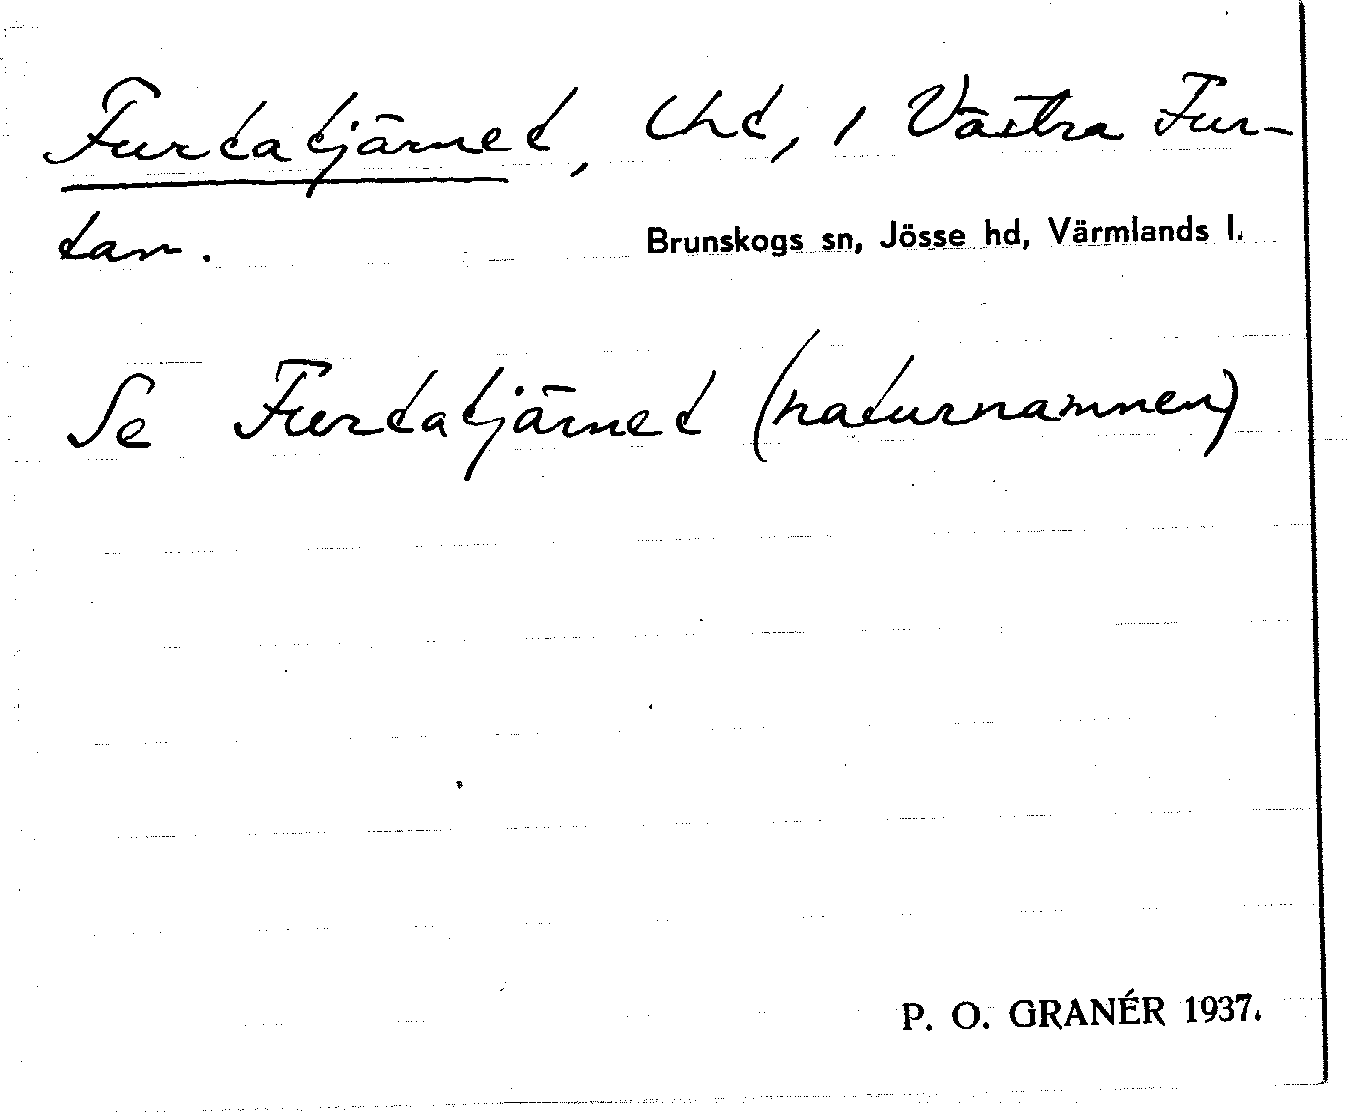 Furtatjärnet, lht, i Västra Fur-
tan.
Brunskogs sn, Jösse hd, Värmlands l.
Se Furtatjärnet (naturnamnen)
P. O. GRANÉR 1937.